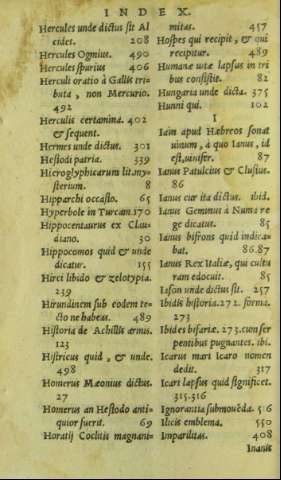 INDEX.
Hercules unde dictus sit Al
cides. 208
Hercules Ogmius. 490
Hercules spurius 406
Herculi oratio à Gallis tri-
buta, non Mercurio.
492
Herculis certamina. 402
& sequent.
Hermes unde dictus. 301
Hesiodi patria. 339
Hieroglyphicarum lit.my-
sterium. 8
Hipparchi occasio. 65
Hyperbole in Turcam. 170
Hippocentaurus ex Clau-
diano. 30
Hippocomos quid & unde
dicatur. 155
Hirci libido & zelotypia.
239
Hirundinem sub eodem te-
cto ne habeas. 489
Historia de Achillis armis.
123
Histricus quid, & unde.
498
Homerus Mæonius dictus.
27
Homerus an Hesiodo anti-
quior fuerit. 69
Horatij Coclitis magnani-
mitas. 457
Hospes qui recipit, & qui
recipitur. 489
Humanæ uitæ lapsus in tri
bus consistit. 82
Hungaria unde dicta. 375
Hunni qui. 102
I
Iam apud Hebræos sonat
uinum, à quo Ianus, id
est, uinifer. 87
Ianus Patulcius & Clusius.
86
Ianus cur ita dictus. ibid.
Ianus Geminus à Numa re
ge dicatus. 85
Ianus bifrons quid indicau
bat. 86.87
Ianus Rex Italiæ, qui cultu
ram edocuit. 85
Iason unde dictus sit. 257
Ibidis historia. 272. forma.
273
Ibides bifariæ. 273. cum ser
pentibus pugnantes. ibi.
Icarus mari Icaro nomen
dedit. 317
Icari lapsus quid significet.
315.316
Ignorantia submouēda. 516
Ilicis emblema. 550
Imparilitas. 408
Inanis